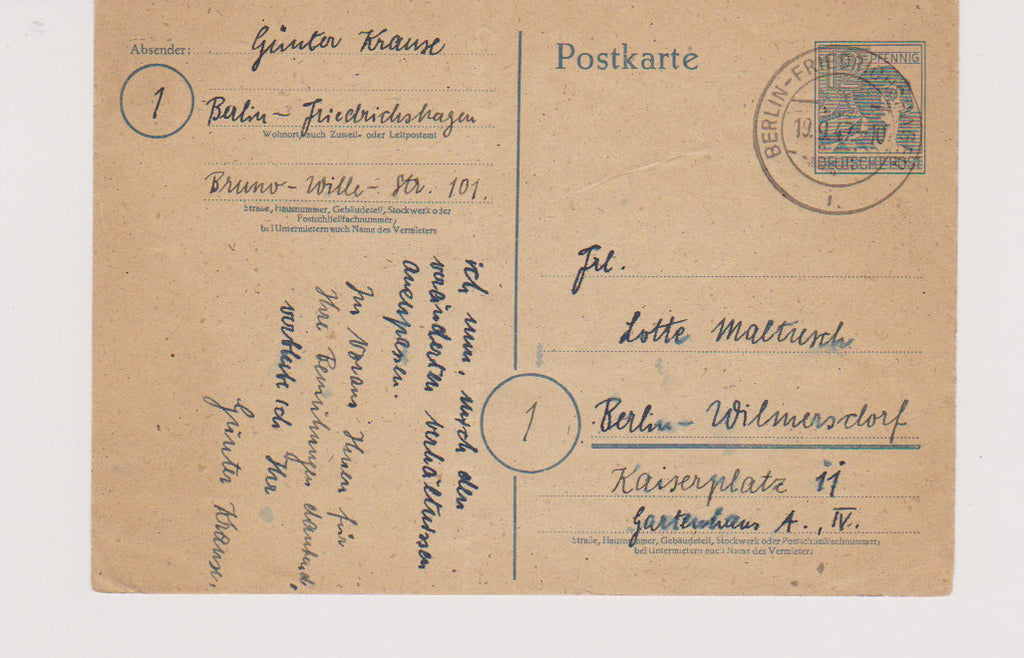 Absender:
Günter Krause
1
Berlin-Friedrichshagen
Wohnort, auch Zustell- oder Leitpostamt
Bruno-Wille-Str. 101.
Straße, Hausnummer, Gebäudeteil, Stockwerk oder
Postschließfachnummer,
bei Untermietern auch Name des Vermieters
ich nun, mich den
veränderten Verhältnissen
anzupassen.
Im Voraus Ihnen für
Ihre Bemühungen dankend,
verbleibe ich Ihr
Günter Krause.
Postkarte
PFENNIG
DEUTSCHE POST
BERLIN-FRIEDRICHSHAGEN
19.9.47
Frl.
Lotte Maltusch
1
Berlin-Wilmersdorf
Kaiserplatz 11
Gartenhaus A., IV.
Straße, Hausnummer, Gebäudeteil, Stockwerk oder Postschließfachnummer,
bei Untermietern auch Name des Vermieters